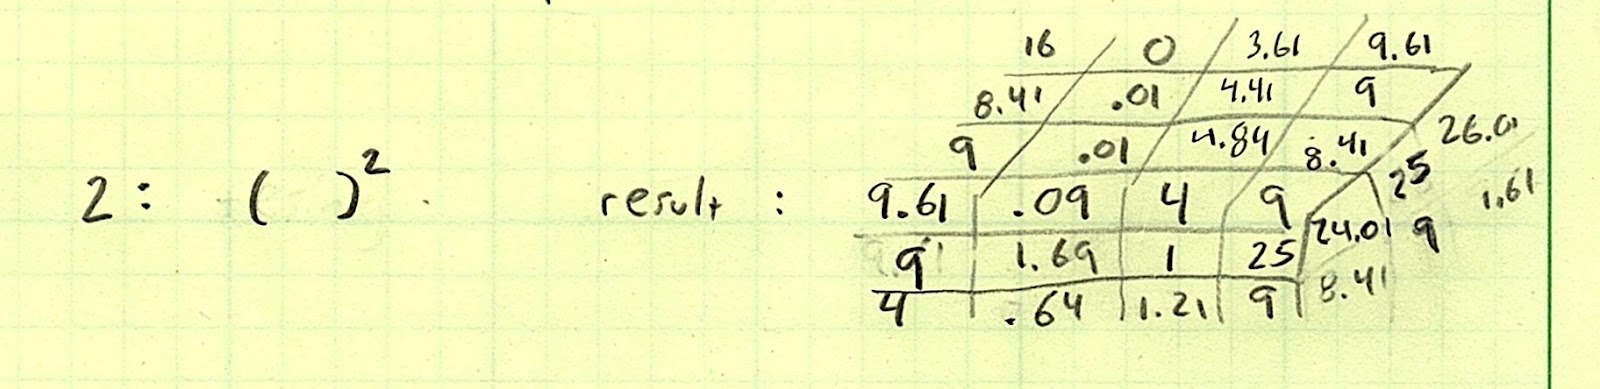 16 0 3.61 9.61
8.41 .01 4.41 9
9 .01 4.84 8.41 26.01
2: ( )² result : 9.61 .09 4 9 25 1.61
9 1.69 1 25 24.01 9
4 .64 1.21 9 8.41